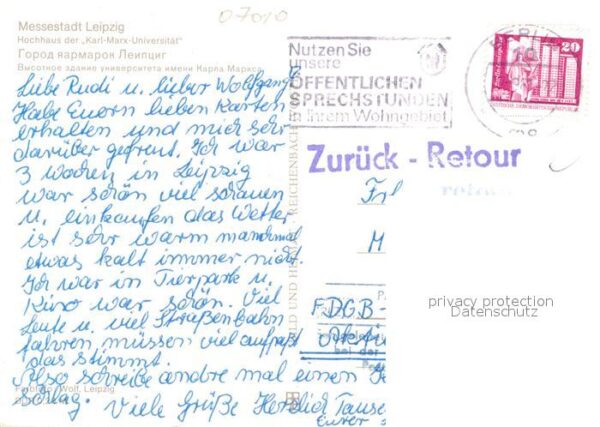 07010
Messestadt Leipzig
Hochhaus der „Karl-Marx-Universität"
Город ярмарок Лейпциг
Высотное здание университета имени Карла Маркса
Liebe Rudi u. lieber Wolfgang
Habe Euern lieben Karten
erhalten und mich sehr
darüber gefreut. Ich war
3 wochen in Leipzig
war schön viel schauen
u. einkaufen das Wetter
ist sehr warm manchmal
etwas kalt immer nicht.
Ich war in Tierpark u.
Kino war schön. Viel
Leute u. viel Straßenbahn
fahren müssen viel aufpaßt
das stimmt.
Also schreibe andre mal einen
Viele Grüße Herzlich
Wolf, Leipzig
Nutzen Sie
unsere
ÖFFENTLICHEN
SPRECHSTUNDEN
in Ihrem Wohngebiet
BERLIN
20
Zurück - Retour
retour
BILD UND HEIMAT REICHENBACH
Frl
M
F.D.G.B-
bei der
privacy protection
Datenschutz